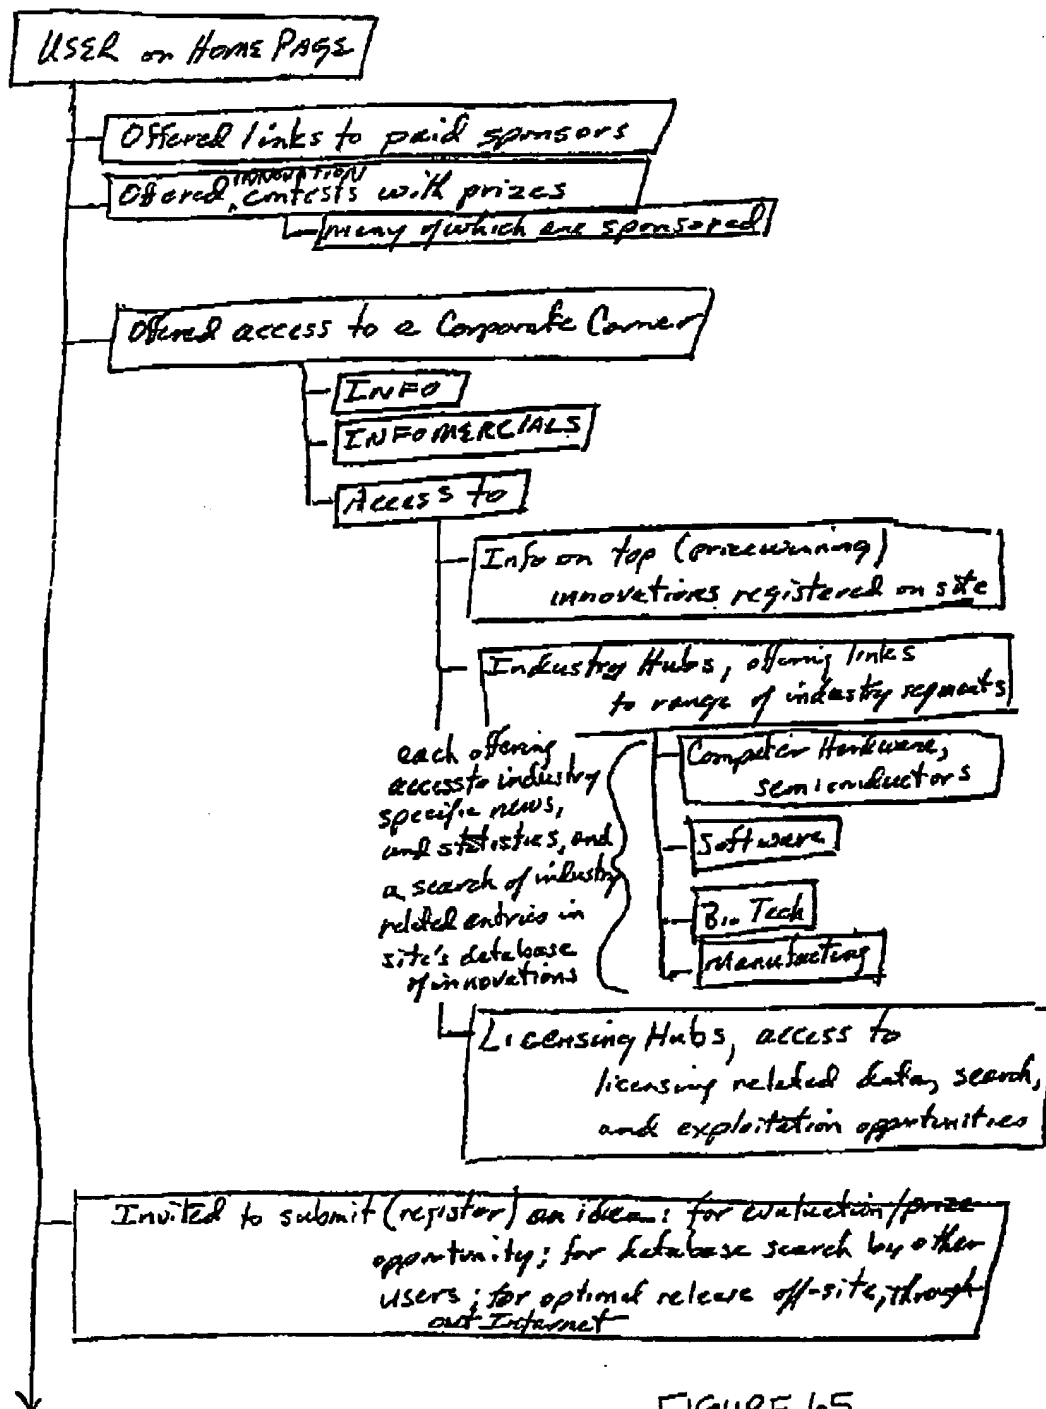 USER on HOME PAGE
Offered links to paid sponsors
INNOVATION
Offered ^ contests with prizes
many of which are sponsored
Offered access to a Corporate Corner
INFO
INFOMERCIALS
Access to
Info on top (prizewinning)
innovations registered on site
Industry Hubs, offering links
to range of industry segments
each offering
access to industry
specific news,
and statistics, and
a search of industry
related entries in
site's database
of innovations
Computer Hardware,
semiconductors
Software
Bio Tech
Manufacting
Licensing Hubs, access to
licensing related data, search,
and exploitation opportunities
Invited to submit (register) an idea: for evaluation/prize
opportunity; for database search by other
users; for optimal release off-site, through-
out Internet
FIGURE 65